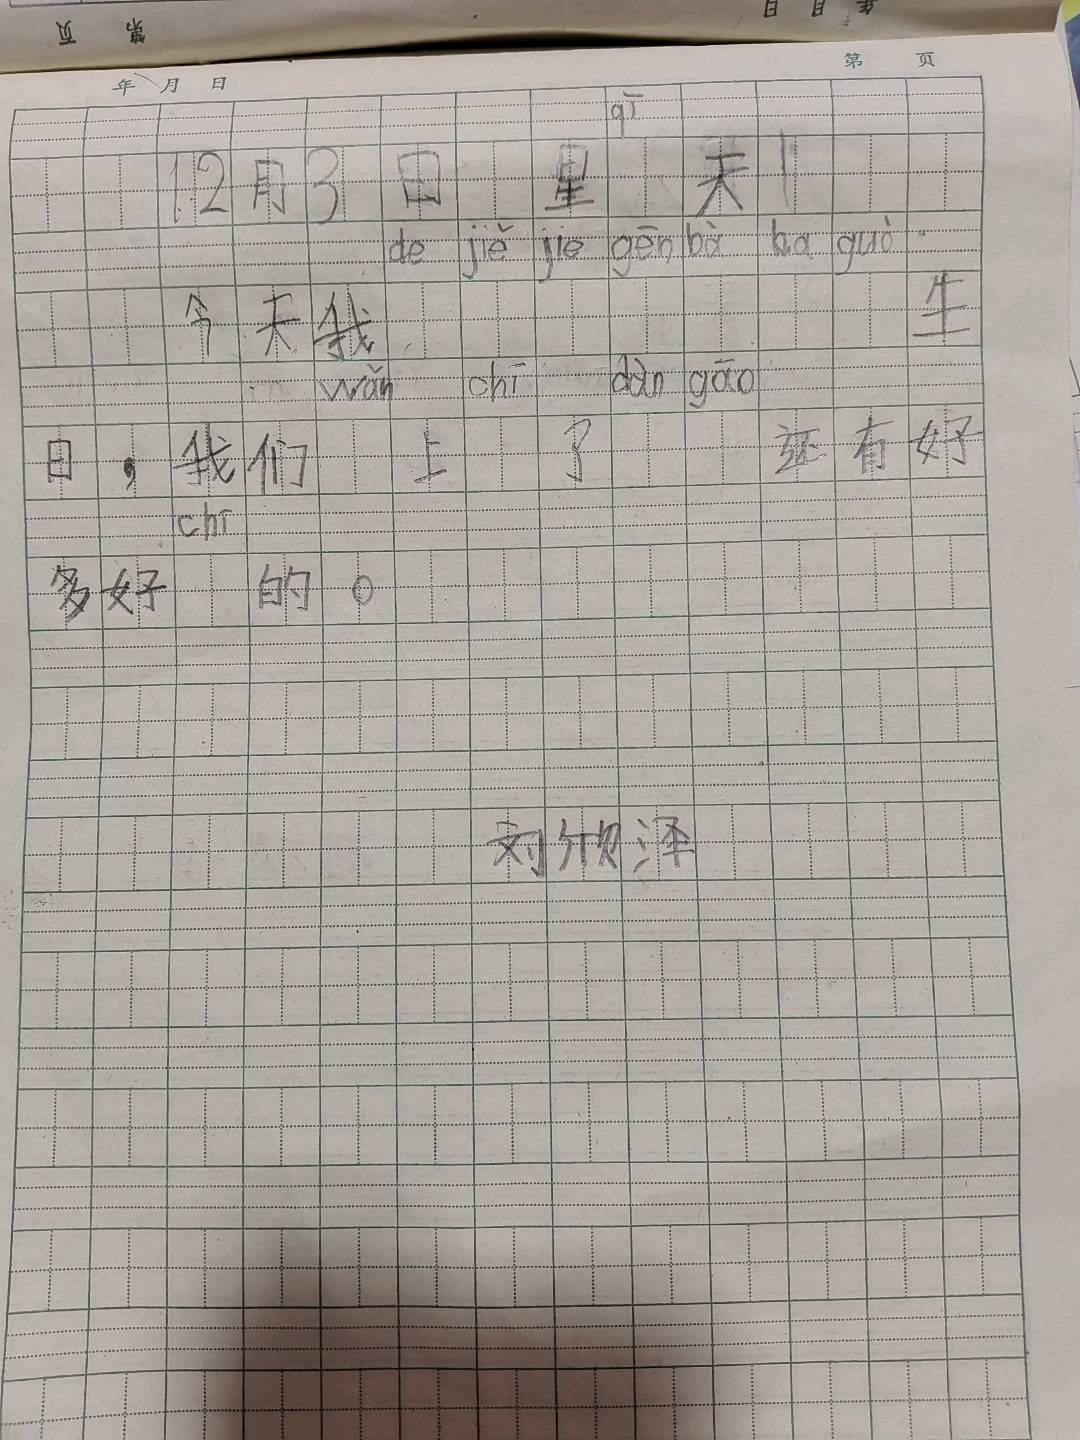 页 第 日 月 年
年 月 日 第 页
qī
12月3日 星 天
de jiě jie gēn bà ba guò
今天我 生
wǎn chī dàn gāo
日，我们 上 了 还有好
chī
多好 的。
刘欣泽